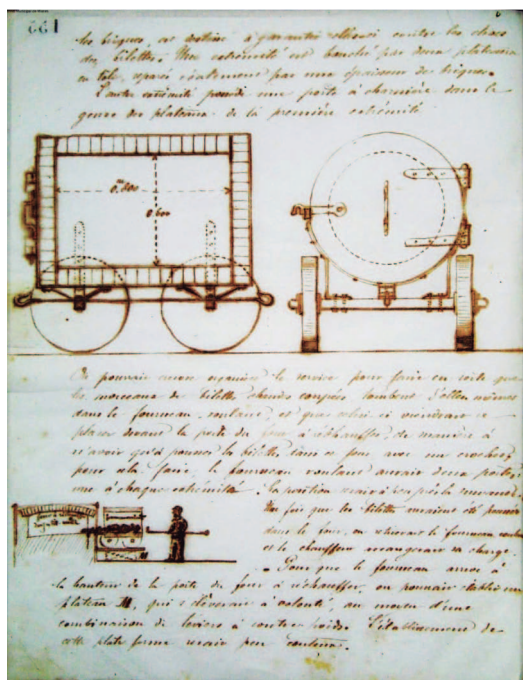 661
les briques, est destiné à garantir celles-ci contre les chocs
des billettes. Une extrémité est bouchée par deux plateaux
en tôle, séparés également par une épaisseur de briques.
L'autre extrémité possède une porte à charnière dans le
genre des plateaux de la première extrémité
0m.800
0.600
On pourrait encore organiser le service pour faire en sorte que
les morceaux de billettes chaudes coupées tombent d'elles mêmes
dans le fourneau roulant et que celui-ci viendrait se
placer devant la porte du four à réchauffer, de manière à
n'avoir qu'à pousser les billettes dans ce four avec un crochet,
pour cela faire, le fourneau roulant aurait deux portes,
une à chaque extrémité. La position serait à peu près la suivante.
Une fois que les billettes auraient été poussées
dans le four, on retirerait le fourneau roulant
et le chauffeur arrangerait sa charge.
Pour que le fourneau arrive à
la hauteur de la porte du four à réchauffer, on pourrait établir un
plateau M, qui s'élèverait à volonté, au moyen d'une
combinaison de leviers à contre poids. L'établissement de
cette plate forme serait peu coûteux.